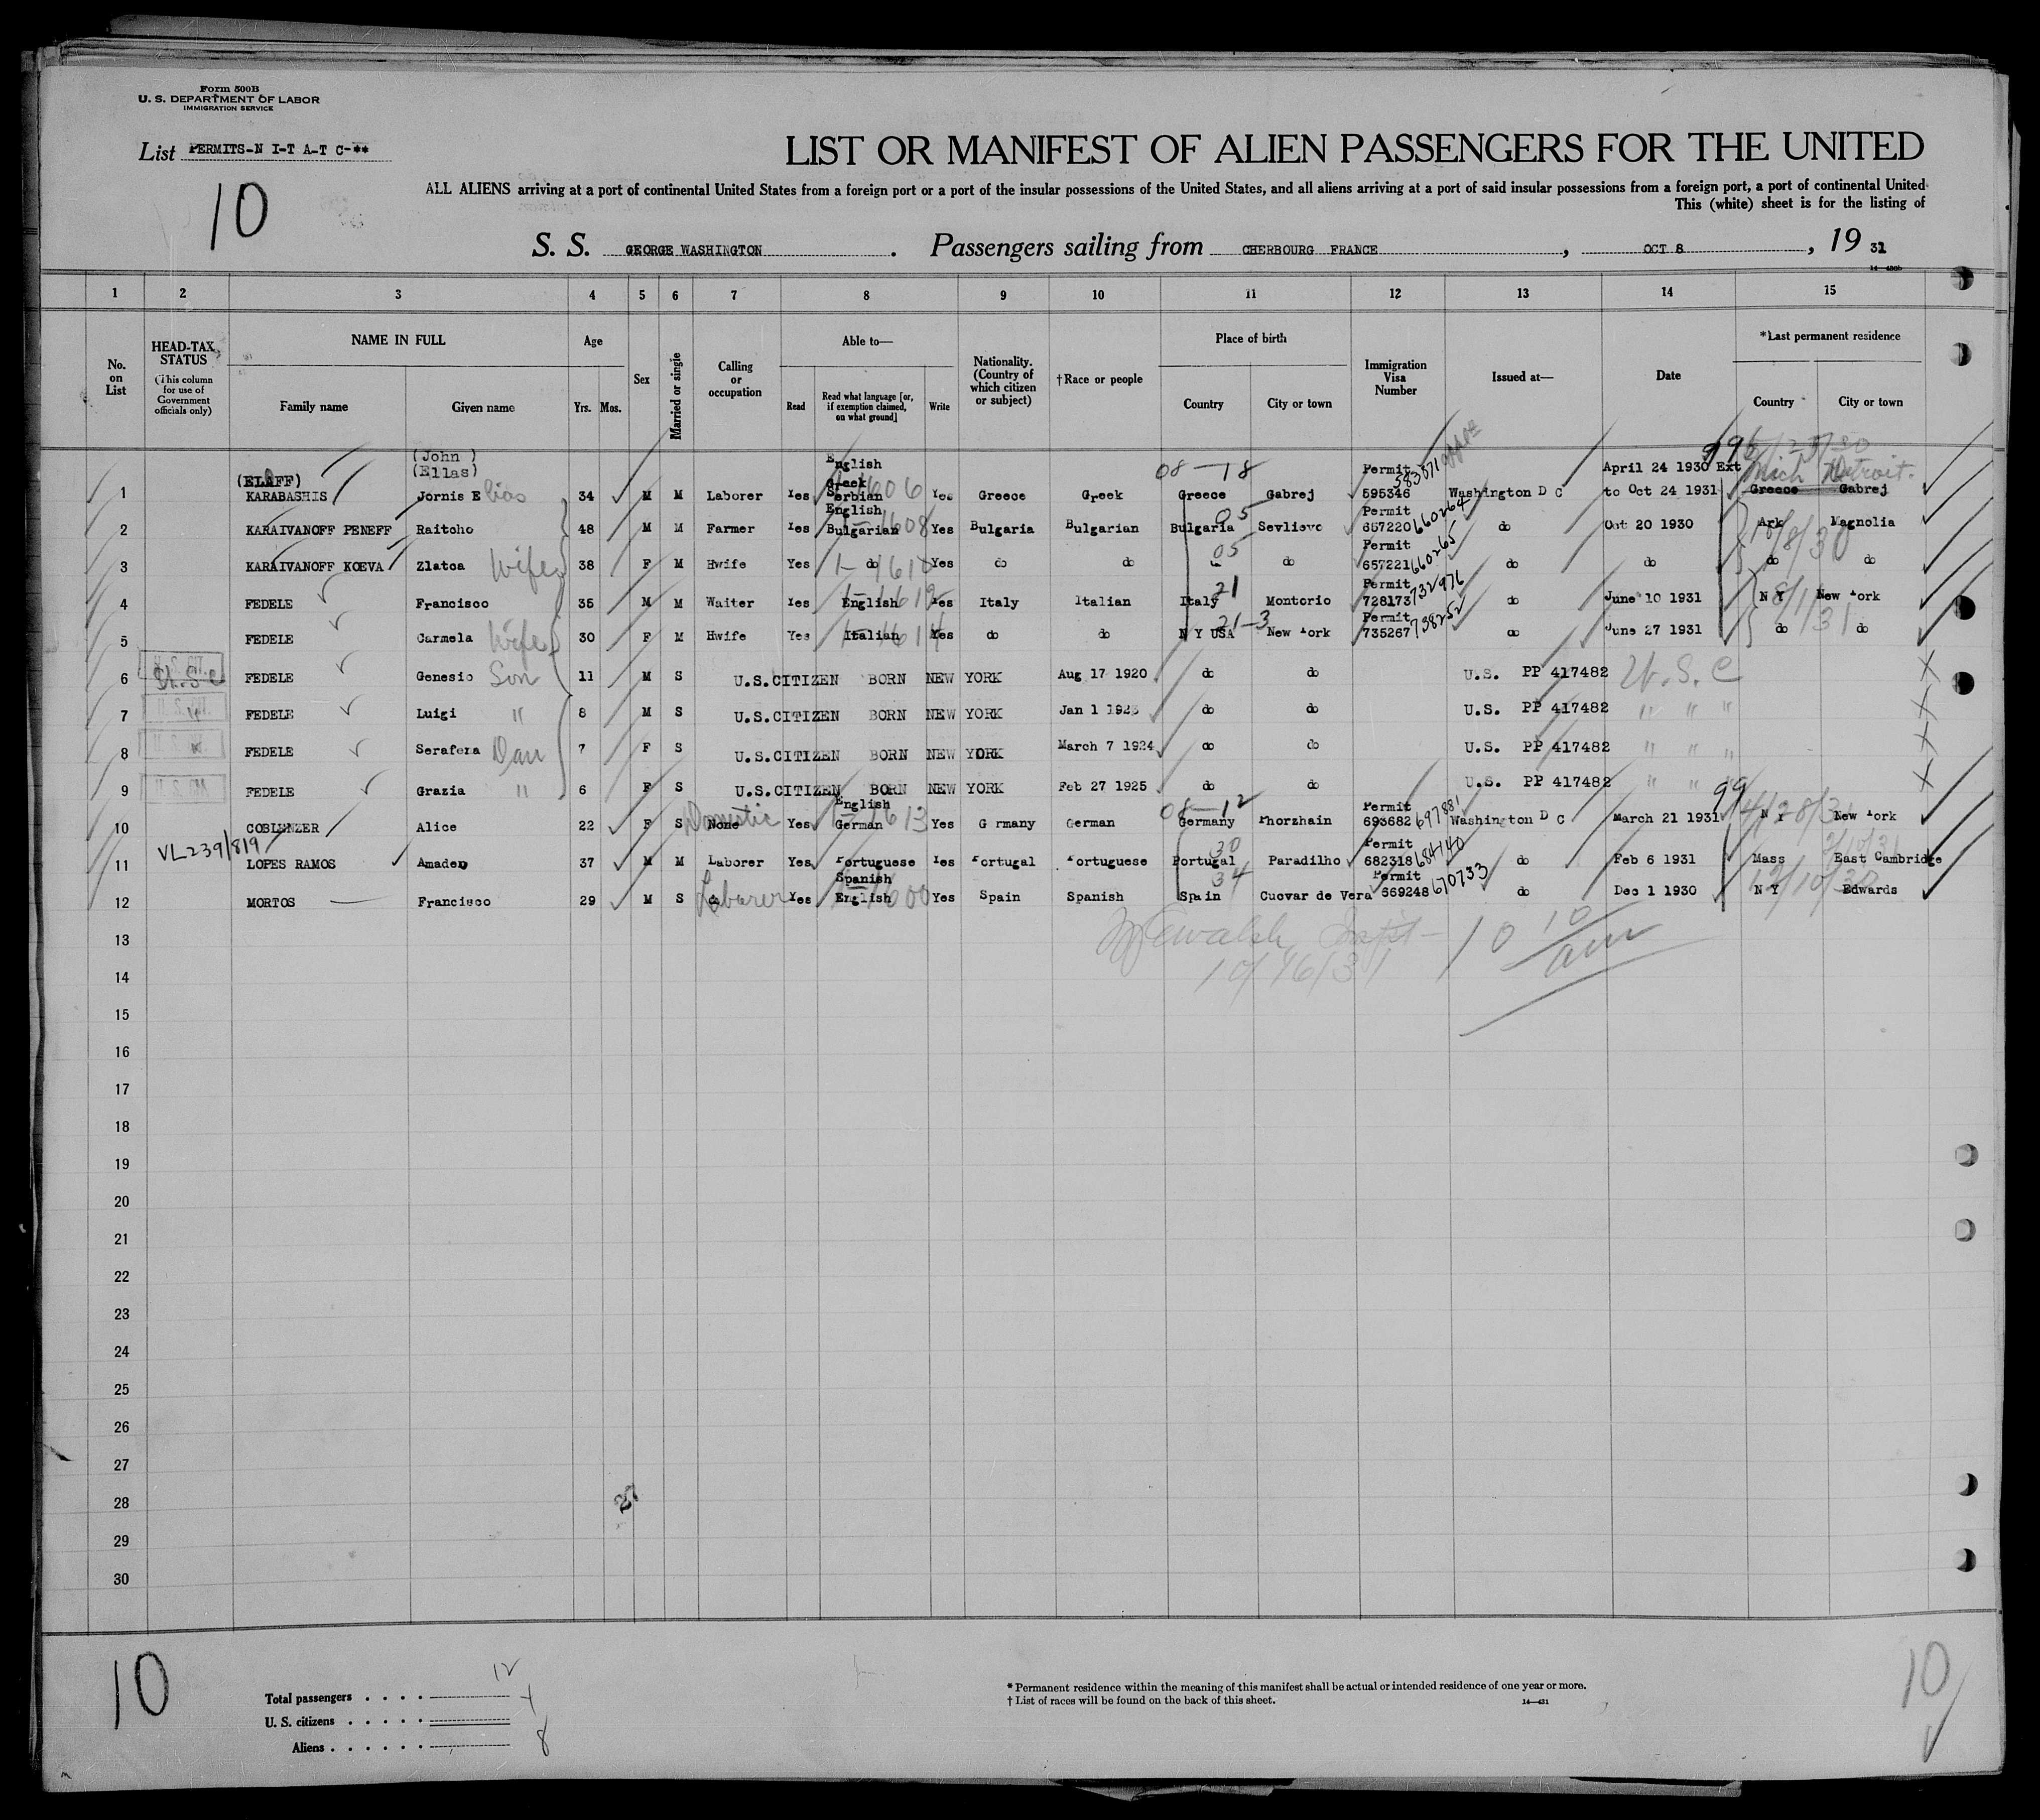 Form 500B
U. S. DEPARTMENT OF LABOR
IMMIGRATION SERVICE
List PERMITS-N I-T A-T C-**
10
LIST OR MANIFEST OF ALIEN PASSENGERS FOR THE UNITED
ALL ALIENS arriving at a port of continental United States from a foreign port or a port of the insular possessions of the United States, and all aliens arriving at a port of said insular possessions from a foreign port, a port of continental United
This (white) sheet is for the listing of
S. S. GEORGE WASHINGTON . Passengers sailing from CHERBOURG FRANCE , OCT 8 , 19 31
1 2 3 4 5 6 7 8 9 10 11 12 13 14 15
No. on List
HEAD-TAX STATUS (This column for use of Government officials only)
NAME IN FULL Family name Given name
Age Yrs. Mos.
Sex
Married or single
Calling or occupation
Able to— Read Read what language [or, if exemption claimed, on what ground] Write
Nationality. (Country of which citizen or subject)
†Race or people
Place of birth Country City or town
Immigration Visa Number
Issued at—
Date
*Last permanent residence Country City or town
(John )
(ELAFF) (Ellas) English 08-18 Permit 583071 April 24 1930 Ext 99 Mich Detroit.
1 KARABASHIS Jornis Elias 34 M M Laborer Yes Greek Serbian Yes Greece Greek Greece Gabrej 595346 Washington D C to Oct 24 1931 Greece Gabrej
English 05 Permit 660264
2 KARAIVANOFF PENEFF Raitcho 48 M M Farmer Yes Bulgarian Yes Bulgaria Bulgarian Bulgaria Sevlievo 657220 do Oct 20 1930 Ark Magnolia
05 Permit 660265 10/8/30
3 KARAIVANOFF KOEVA Zlatca Wife 38 F M Hwife Yes do Yes do do do 657221 do do do do
21 Permit 732976
4 FEDELE Francisco 35 M M Waiter Yes English Yes Italy Italian Italy Montorio 728173 do June 10 1931 N Y New York
21-3 Permit 738252 8/1/31
5 FEDELE Carmela Wife 30 F M Hwife Yes Italian Yes do do N Y USA New York 735267 do June 27 1931 do do
6 U.S.C FEDELE Genesio Son 11 M S U.S.CITIZEN BORN NEW YORK Aug 17 1920 do do U.S. PP 417482 U.S.C
7 FEDELE Luigi " 8 M S U.S.CITIZEN BORN NEW YORK Jan 1 1923 do do U.S. PP 417482 " " "
8 FEDELE Serafera Dau 7 F S U.S.CITIZEN BORN NEW YORK March 7 1924 do do U.S. PP 417482 " " "
9 FEDELE Grazia " 6 F S U.S.CITIZEN BORN NEW YORK Feb 27 1925 do do U.S. PP 417482 " " "
Domestic English 08-12 Permit 697881 99 4/28/31
10 COBLENZER Alice 22 F S None Yes German Yes G rmany German Germany Phorzhain 693682 Washington D C March 21 1931 N Y New York
VL239/819 30 Permit 684140
11 LOPES RAMOS Amadeo 37 M M Laborer Yes Portuguese Yes Portugal Portuguese Portugal Paradilho 682318 do Feb 6 1931 Mass East Cambridge
Spanish 34 Permit 670733 12/10/30
12 MORTOS Francisco 29 M S Laborer Yes English Yes Spain Spanish Spain Cuevar de Vera 669248 do Dec 1 1930 N Y Edwards
13 10 10 am
14 10/16/31
15
16
17
18
19
20
21
22
23
24
25
26
27
28
29
30
10
Total passengers . . . . 12
U. S. citizens . . . . . 4
Aliens . . . . . . 8
* Permanent residence within the meaning of this manifest shall be actual or intended residence of one year or more.
† List of races will be found on the back of this sheet.
14—431
10